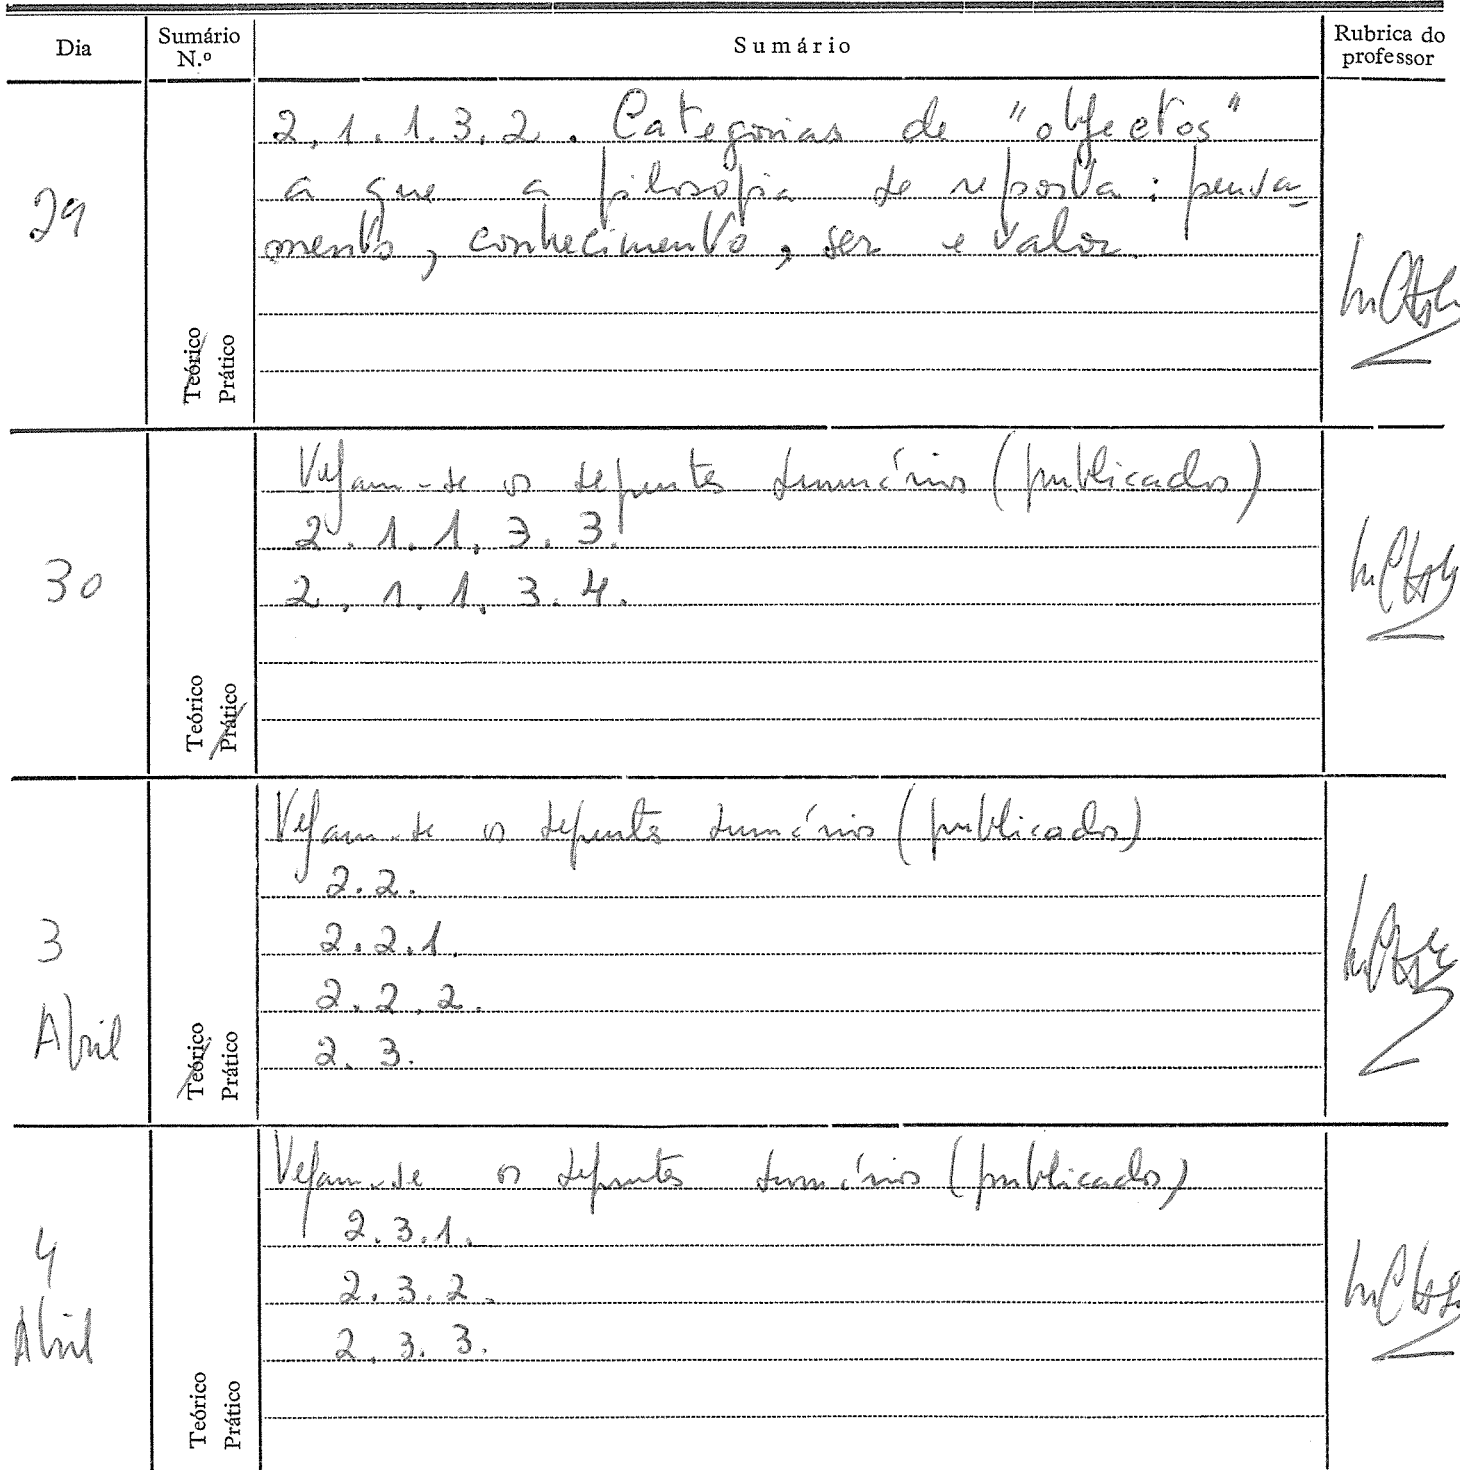 Dia
Sumário
N.º
Sumário
Rubrica do
professor
29
Teórico
Prático
2.1.1.3.2. Categorias de "objectos"
a que a filosofia se reporta: pensa-
mento, conhecimento, ser e valor.
30
Teórico
Prático
Vejam-se os seguintes sumários (publicados)
2.1.1.3.3.
2.1.1.3.4.
3
Abril
Teórico
Prático
Vejam-se os seguintes sumários (publicados)
2.2.
2.2.1.
2.2.2.
2.3.
4
Abril
Teórico
Prático
Vejam-se os seguintes sumários (publicados)
2.3.1.
2.3.2.
2.3.3.